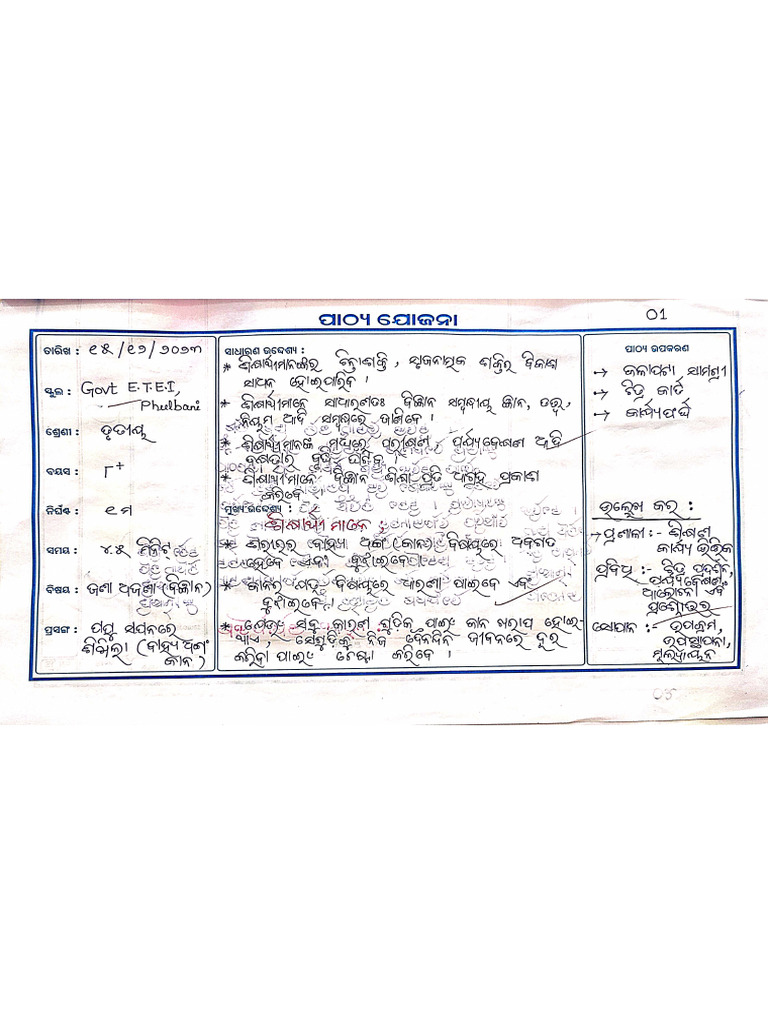 ପାଠ୍ୟ ଯୋଜନା
01
ତାରିଖ : ୧୫/୧୨/୨୦୨୩
ସ୍କୁଲ : Govt E.T.E.I,
Phulbani
ଶ୍ରେଣୀ : ତୃତୀୟ
ବୟସ : ୮+
ନିର୍ଘଣ୍ଟ : ୧ମ
ସମୟ : ୪୫ ମିନିଟ୍
ବିଷୟ : ଜଣା ଅଜଣା (ବିଜ୍ଞାନ)
ପ୍ରସଙ୍ଗ : ପପୁ ସପନରେ
ଶିଖିଲା (ବାହ୍ୟ ଅଙ୍ଗ
କାନ)
ସାଧାରଣ ଉଦ୍ଦେଶ୍ୟ :
* ଶିକ୍ଷାର୍ଥୀମାନଙ୍କର ଚିନ୍ତାଶକ୍ତି, ସୃଜନାତ୍ମକ ଶକ୍ତିର ବିକାଶ
ସାଧନ ହୋଇପାରିବ ।
* ଶିକ୍ଷାର୍ଥୀମାନେ ସାଧାରଣତଃ ବିଜ୍ଞାନ ସମ୍ବନ୍ଧୀୟ ଜ୍ଞାନ, ତତ୍ତ୍ୱ,
ନିୟମ ଆଦି ସମ୍ବନ୍ଧରେ ଜାଣିବେ ।
* ଶିକ୍ଷାର୍ଥୀମାନଙ୍କ ମଧ୍ୟରେ ପରୀକ୍ଷଣ, ପର୍ଯ୍ୟବେକ୍ଷଣ ଆଦି
ଦକ୍ଷତାର ବୃଦ୍ଧି ଘଟିବ ।
* ଶିକ୍ଷାର୍ଥୀମାନେ ବିଜ୍ଞାନ ଶିକ୍ଷା ପ୍ରତି ଆଗ୍ରହ ପ୍ରକାଶ
କରିବେ ।
ମୁଖ୍ୟ ଉଦ୍ଦେଶ୍ୟ :
ଶିକ୍ଷାର୍ଥୀମାନେ :
* ଶରୀରର ବାହ୍ୟ ଅଙ୍ଗ (କାନ) ବିଷୟରେ ଅବଗତ
ହେବେ ଏବଂ ବୁଝାଇବେ ।
* କାନର ଯତ୍ନ ବିଷୟରେ ଧାରଣା ପାଇବେ ଏବଂ
ବୁଝାଇବେ ।
* ଯେଉଁ ସବୁ କାରଣ ଗୁଡ଼ିକ ପାଇଁ କାନ ଖରାପ ହୋଇ-
ଥାଏ, ସେଗୁଡ଼ିକୁ ନିଜ ଦୈନନ୍ଦିନ ଜୀବନରେ ଦୂର
କରିବା ପାଇଁ ଚେଷ୍ଟା କରିବେ ।
ପାଠ୍ୟ ଉପକରଣ
→ କଳାପଟା ସାମଗ୍ରୀ
→ ଚିତ୍ର କାର୍ଡ
→ କାର୍ଯ୍ୟଫର୍ଦ୍ଦ
ଉଲ୍ଲେଖ କର :
→ ପ୍ରଣାଳୀ :- ଶିକ୍ଷଣ
କାର୍ଯ୍ୟ ଭିତ୍ତିକ
ପ୍ରବିଧି :- ଚିତ୍ର ପ୍ରଦର୍ଶନ,
ପର୍ଯ୍ୟବେକ୍ଷଣ,
ଆଲୋଚନା ଏବଂ
ପ୍ରଶ୍ନୋତ୍ତର
ସୋପାନ :- ଉପକ୍ରମ,
ଉପସ୍ଥାପନା,
ମୂଲ୍ୟାୟନ